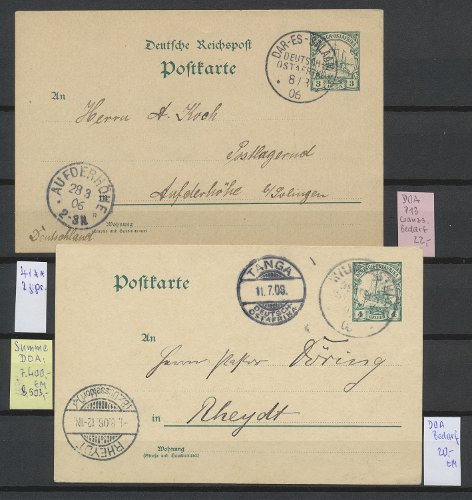 Deutsche Reichspost
Postkarte
DAR-ES-SALAAM
DEUTSCH-
OSTAFRIKA
06
3
3
An
Herrn A. Koch
Postlagernd
Aufderhöhe b/Solingen
AUFDERHÖHE
06
Deutschland
Wohnung
(Straße und Hausnummer)
DOA
P13
Bedarf
22,-
Postkarte
TANGA
11.7.06.
DEUTSCH-
OSTAFRIKA
4
4
An
Herrn Pastor Döring
in
Rheydt
RHEYDT
Wohnung
(Straße und Hausnummer)
Summe
DOA:
7.400,-
EM
DOA
Bedarf
20,-
EM